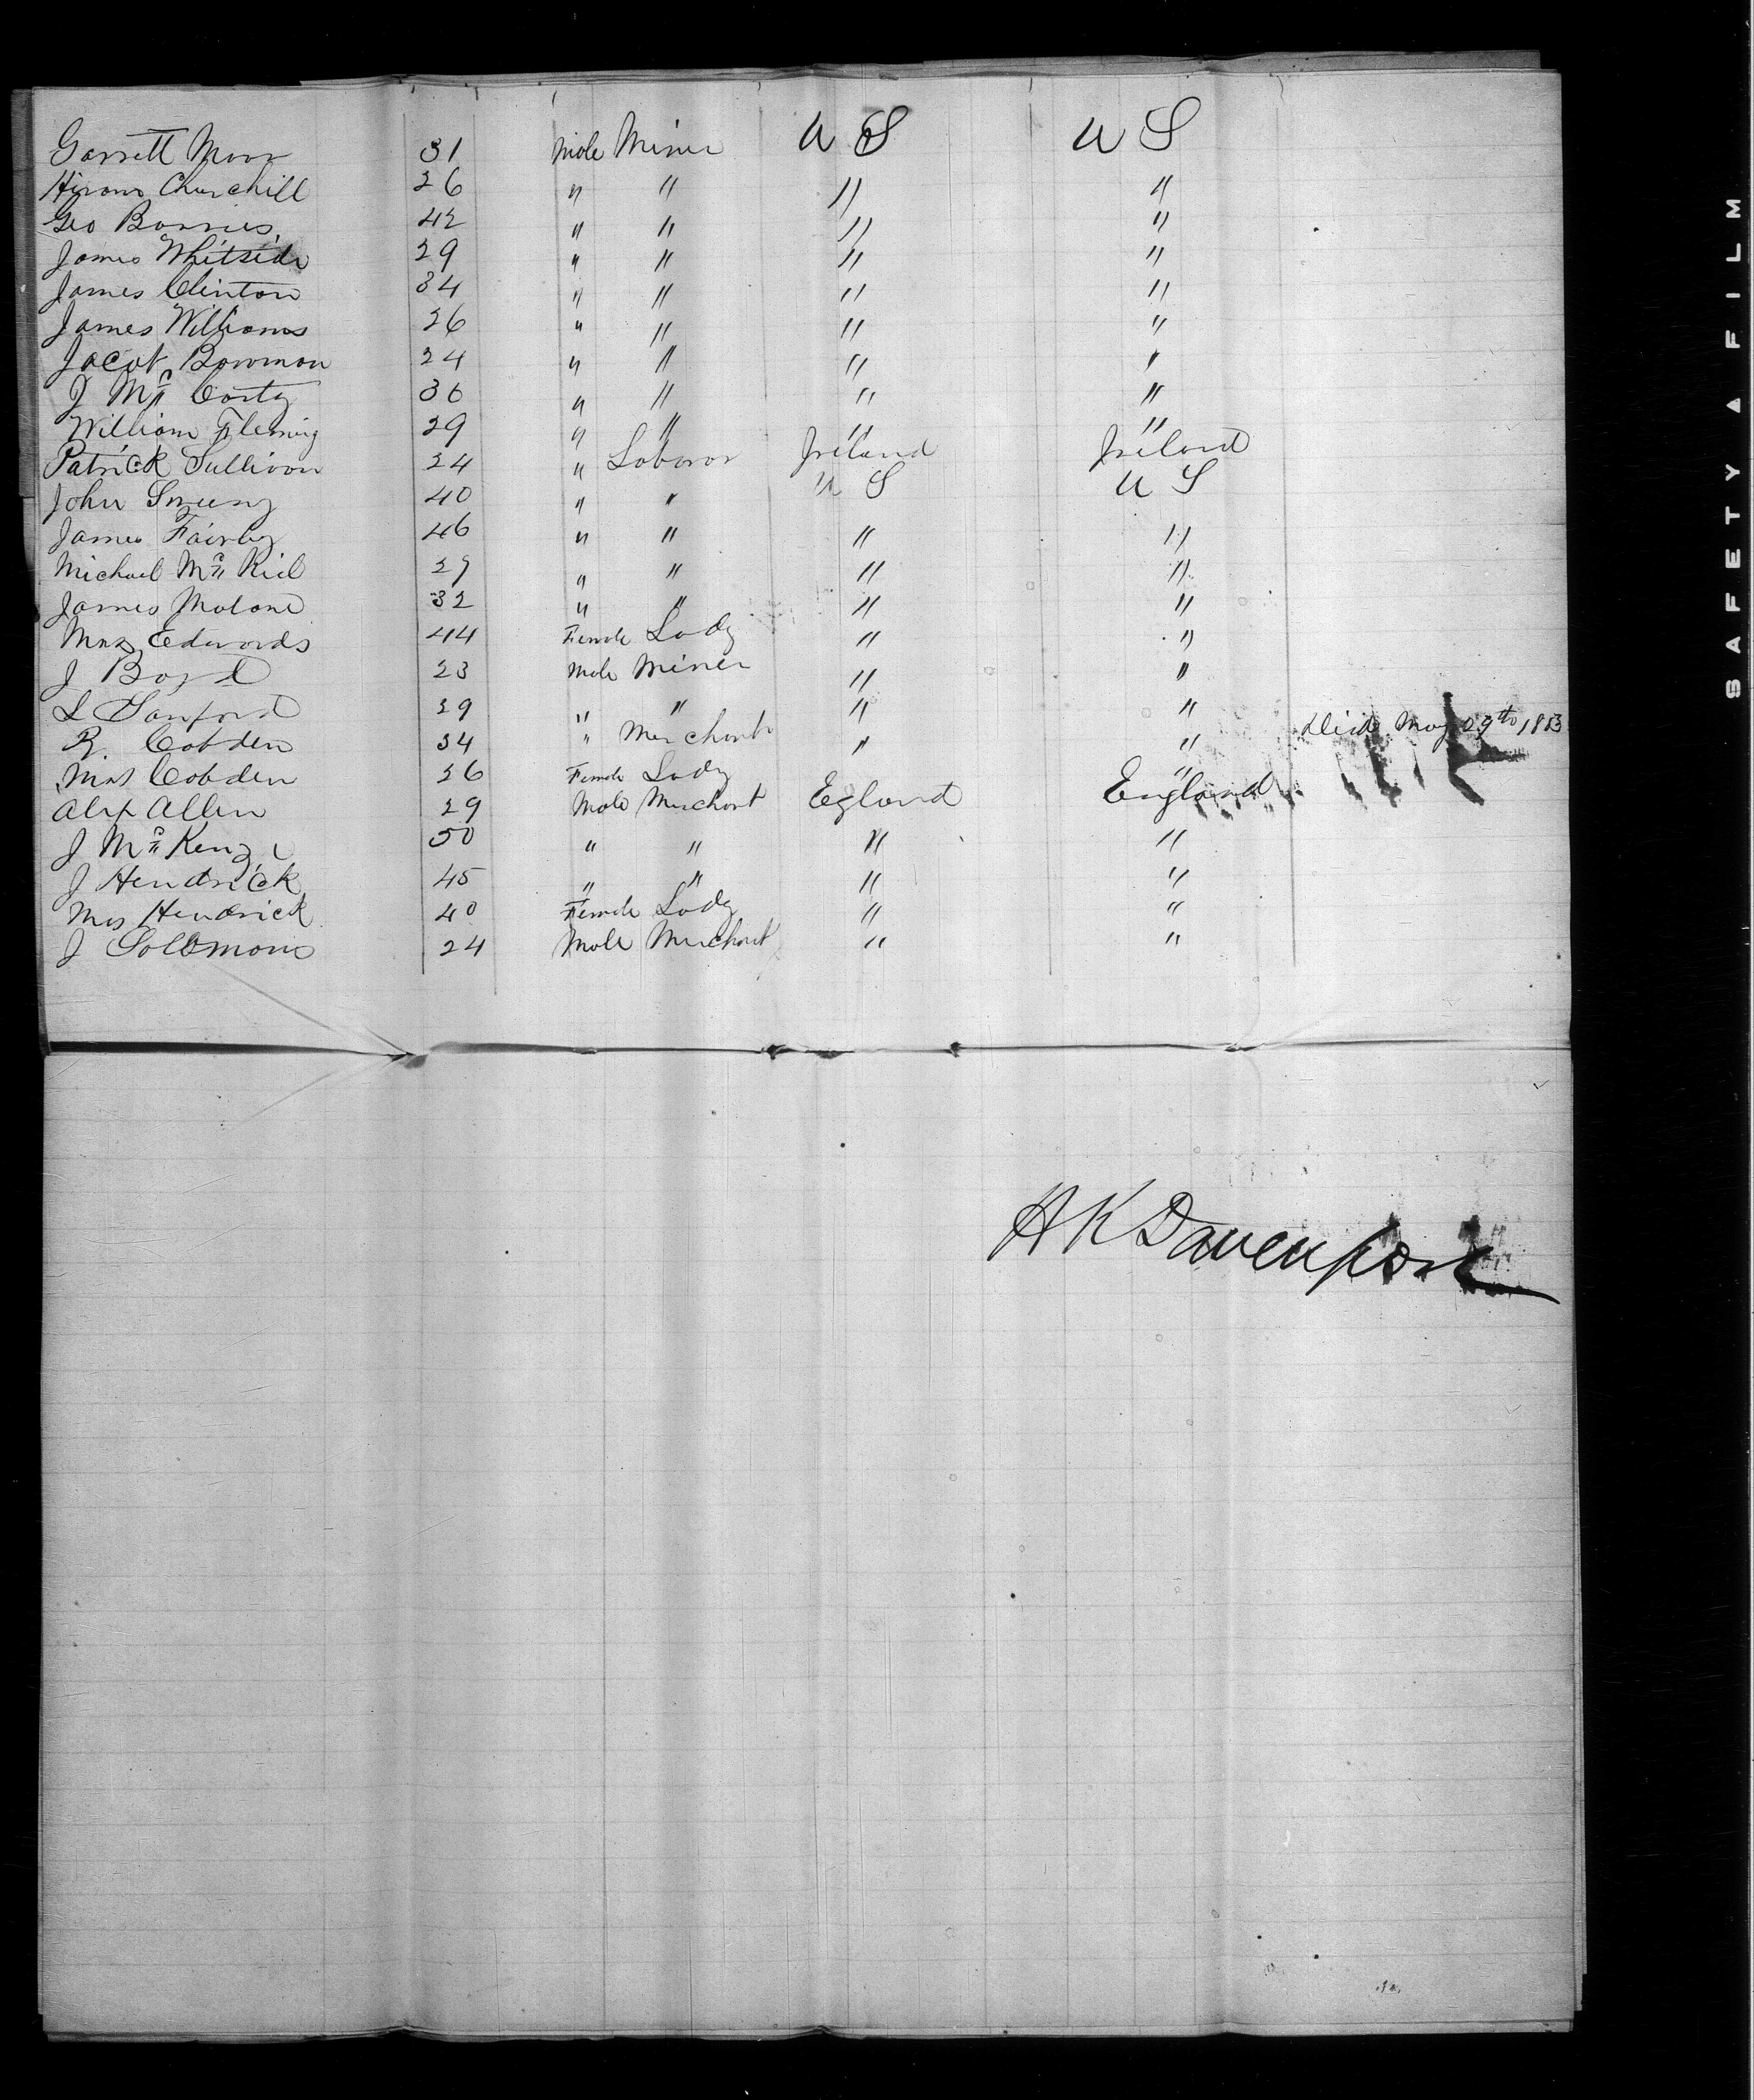 Garrett Moor 31 Male Miner U S U S
Hiram Churchill 26 " " " "
Geo Barnes 42 " " " "
James Whitside 29 " " " "
James Clinton 34 " " " "
James Williams 26 " " " "
Jacob Bowman 24 " " " "
J Mc Carty 30 " " " "
William Fleming 29 " " " "
Patrick Sullivan 24 " Laboror Ireland Ireland
John 40 " " U S U S
James 46 " " " "
Michael Mc 27 " " " "
James Malone 32 " " " "
Mrs Edwards 44 Female Lady " "
J Boyd 23 Male Miner " "
L Sanford 29 " " " "
R Cobden 34 " Merchant " " Died May 29th 1853
Mrs Cobden 26 Female Lady "
Alex Allen 29 Male Merchant Egland England
J Mc Kenzi 50 " " " "
J Hendrick 45 " " " "
Mrs Hendrick 40 Female Lady " "
J Solomons 24 Male Merchant " "
H K Davenport
SAFETY A FILM